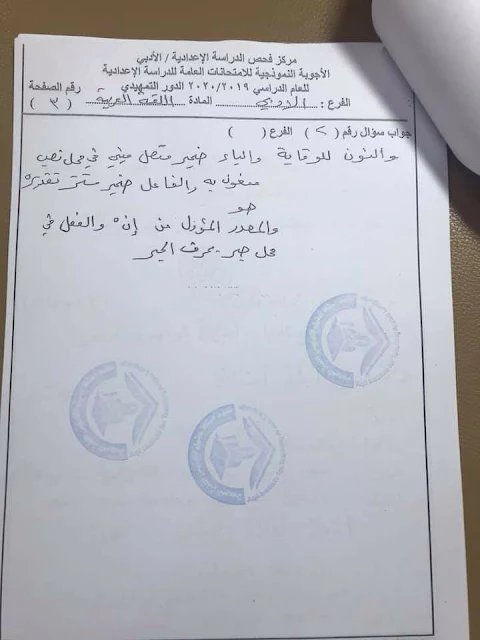 مركز فحص الدراسة الإعدادية / الأدبي
الأجوبة النموذجية للامتحانات العامة للدراسة الإعدادية
للعام الدراسي ٢٠٢٠/٢٠١٩ الدور التمهيدي
رقم الصفحة
الفرع : الادبي المادة اللغة العربية ( ٣ )
جواب سؤال رقم ( ٢ ) الفرع ( )
والنون للوقاية والياء ضمير متصل مبني في محل نصب
مفعول به والفاعل ضمير مستتر تقديره
هو
والمصدر المؤول من إنْ والفعل في
محل جر بحرف الجر